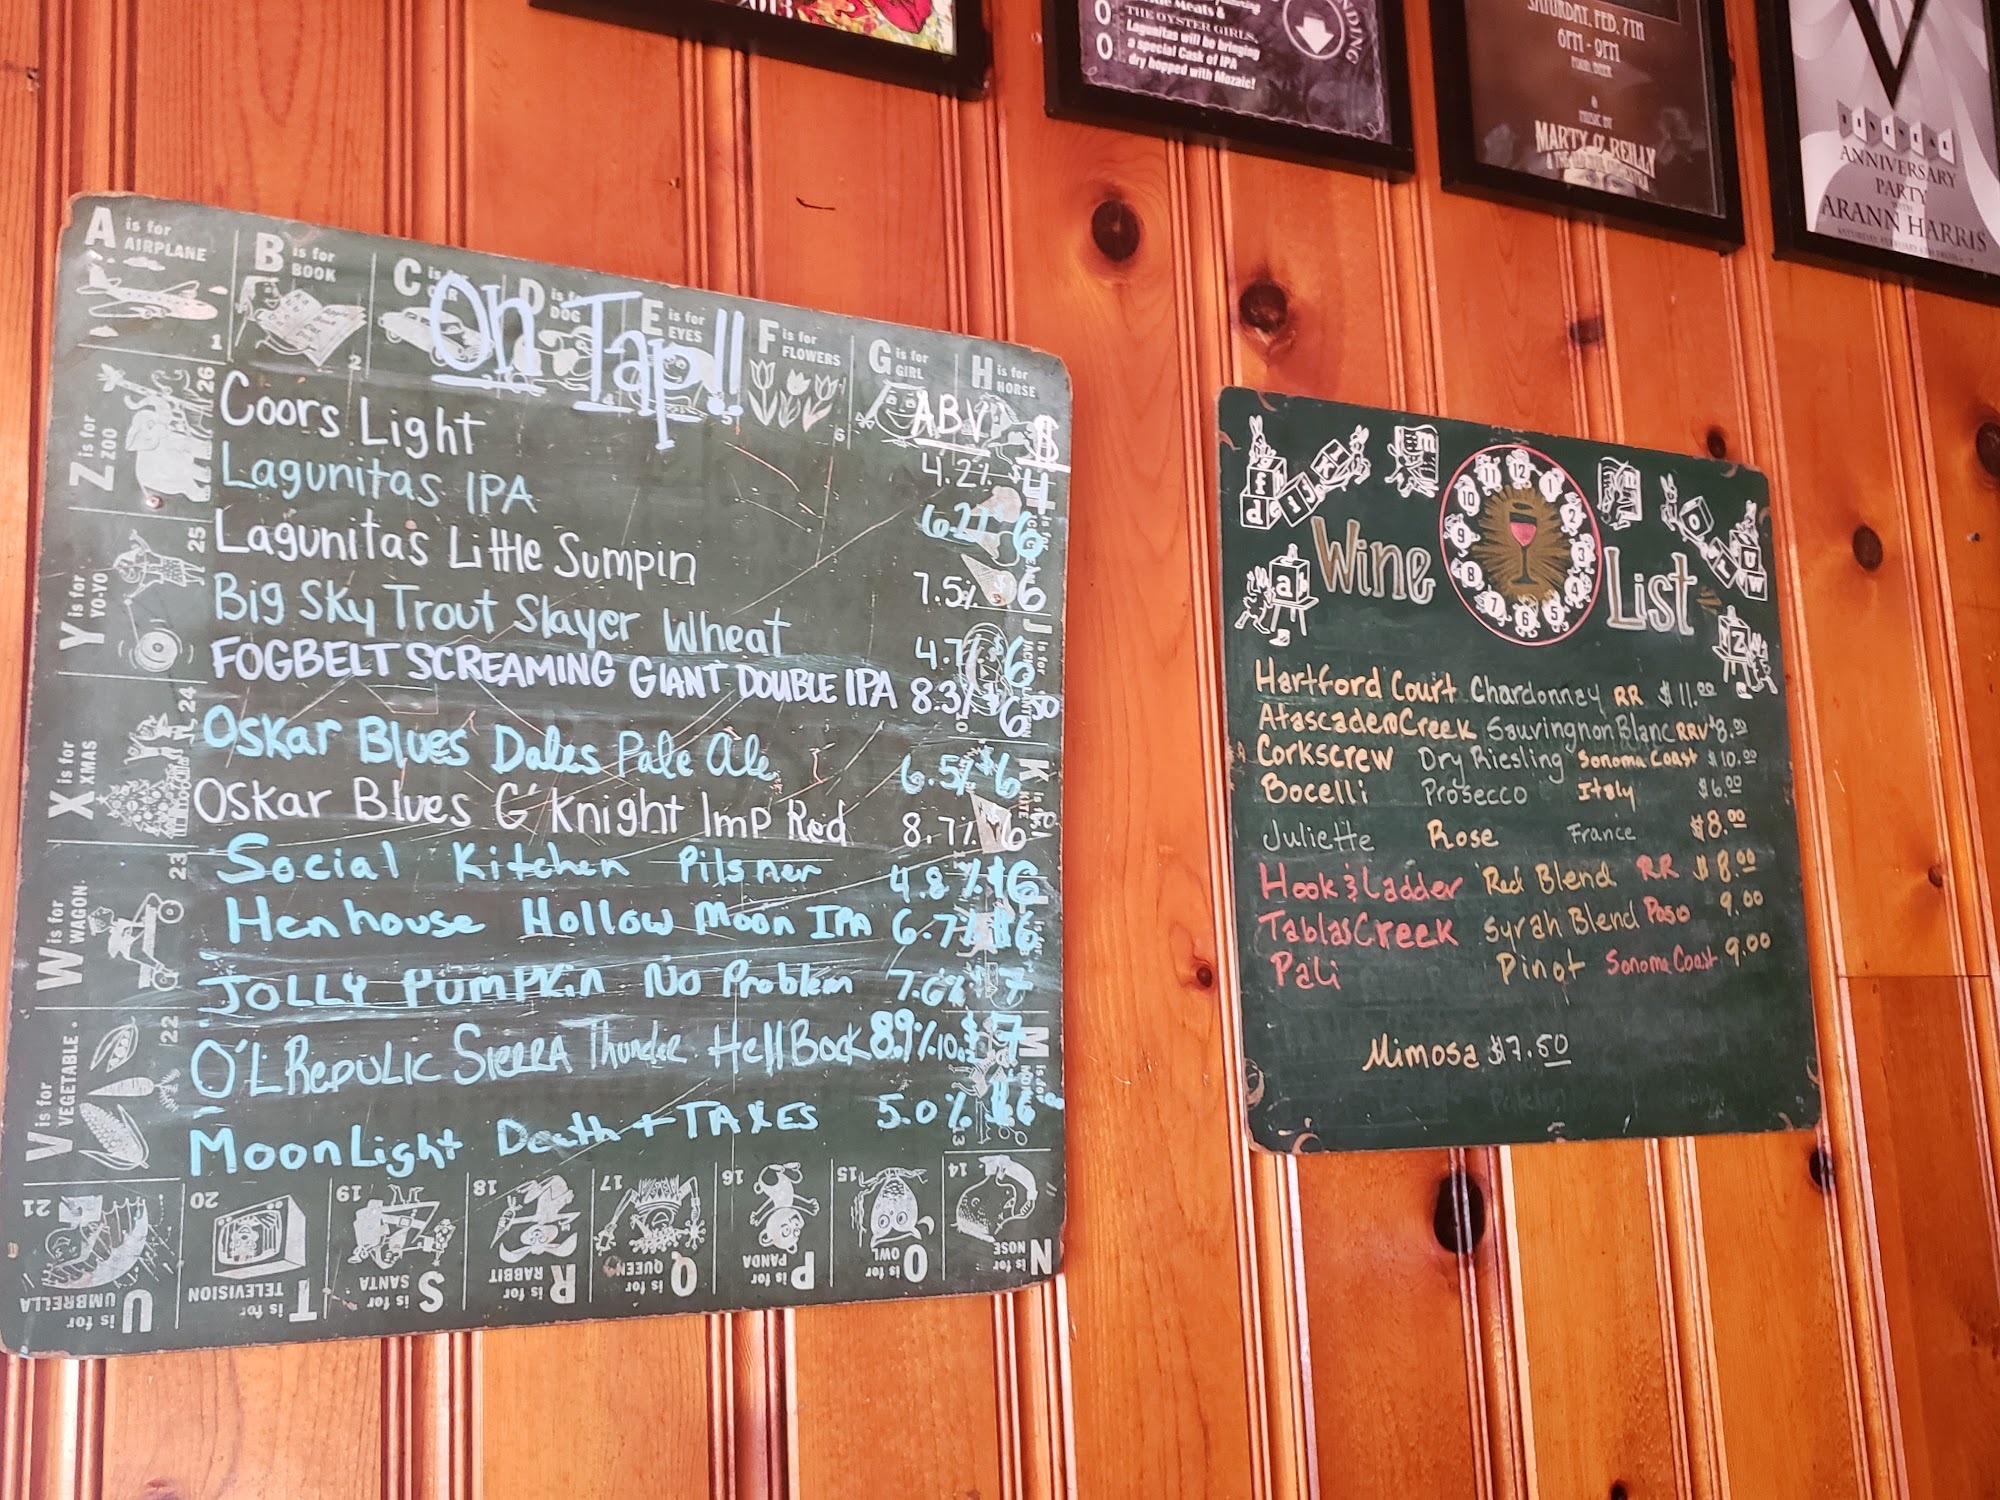 2013
tle Meats &
THE OYSTER GIRLS.
Lagunitas will be bringing
a special Cask of IPA
dry hopped with Mozaic!
SATURDAY, FEB. 7TH
6PM - 9PM
FOOD, BEER
&
MUSIC BY
MARTY O'REILLY
ANNIVERSARY
PARTY
WITH
ARANN HARRIS
A is for AIRPLANE 1
B is for BOOK 2
C is for CAR
D is for DOG
E is for EYES 5
F is for FLOWERS 6
G is for GIRL
H is for HORSE
On Tap!!
ABV $
Coors Light 4.2% $4
Lagunitas IPA 6.2% $6
Lagunitas Little Sumpin 7.5% $6
Big Sky Trout Slayer Wheat 4.7% $6
FOGBELT SCREAMING GIANT DOUBLE IPA 8.3% $6.50
Oskar Blues Dales Pale Ale 6.5% $6
Oskar Blues G'Knight Imp Red 8.7% $6
Social Kitchen Pilsner 4.8% $6
Henhouse Hollow Moon IPA 6.7% $6
JOLLY PUMPKIN No Problem 7.6% 7
O'L REPULIC SIERRA Thunder Hell Bock 8.9% 10oz $7
MoonLight Death + TAXES 5.0% $6
Z is for ZOO 26
Y is for YO-YO 25
X is for XMAS 24
W is for WAGON. 23
V is for VEGETABLE. 22
U is for UMBRELLA 21
T is for TELEVISION 20
S is for SANTA 19
R is for RABBIT 18
Q is for QUEEN 17
P is for PANDA 16
O is for OWL 15
N is for NOSE 14
M is for 13
K is for KITE
J is for
Wine List
12 1 2 3 4 5 6 7 8 9 10 11
Hartford Court Chardonnay RR $11.00
Atascadero Creek Sauvingnon Blanc RRV $8.00
Corkscrew Dry Riesling Sonoma Coast $10.00
Bocelli Prosecco Italy $6.00
Juliette Rose France $8.00
Hook & Ladder Red Blend RR $8.00
Tablas Creek Syrah Blend Paso 9.00
Pali Pinot Sonoma Coast 9.00
Mimosa $7.50